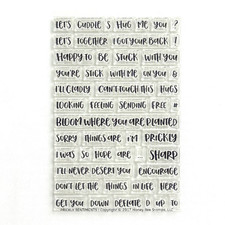 LET'S CUDDLE S HUG ME YOU ?
LET'S TOGETHER I GOT YOUR BACK !
HAPPY TO BE STUCK WITH YOU
YOU'RE STUCK WITH ME ON YOU &
I'LL GLADLY CAN'T TOUCH THIS HUGS
LOOKING FEELING SENDING FREE #
BLOOM WHERE YOU ARE PLANTED
SORRY THINGS ARE I'M PRICKLY
I WAS SO HOPE ARE ... SHARP
I'LL NEVER DESERT YOU ENCOURAGE
DON'T LET THE THINGS IN LIFE HERE
GET YOU DOWN DEFLATE D UP TO
PRICKLY SENTIMENTS | Copyright © 2017 Honey Bee Stamps, LLC